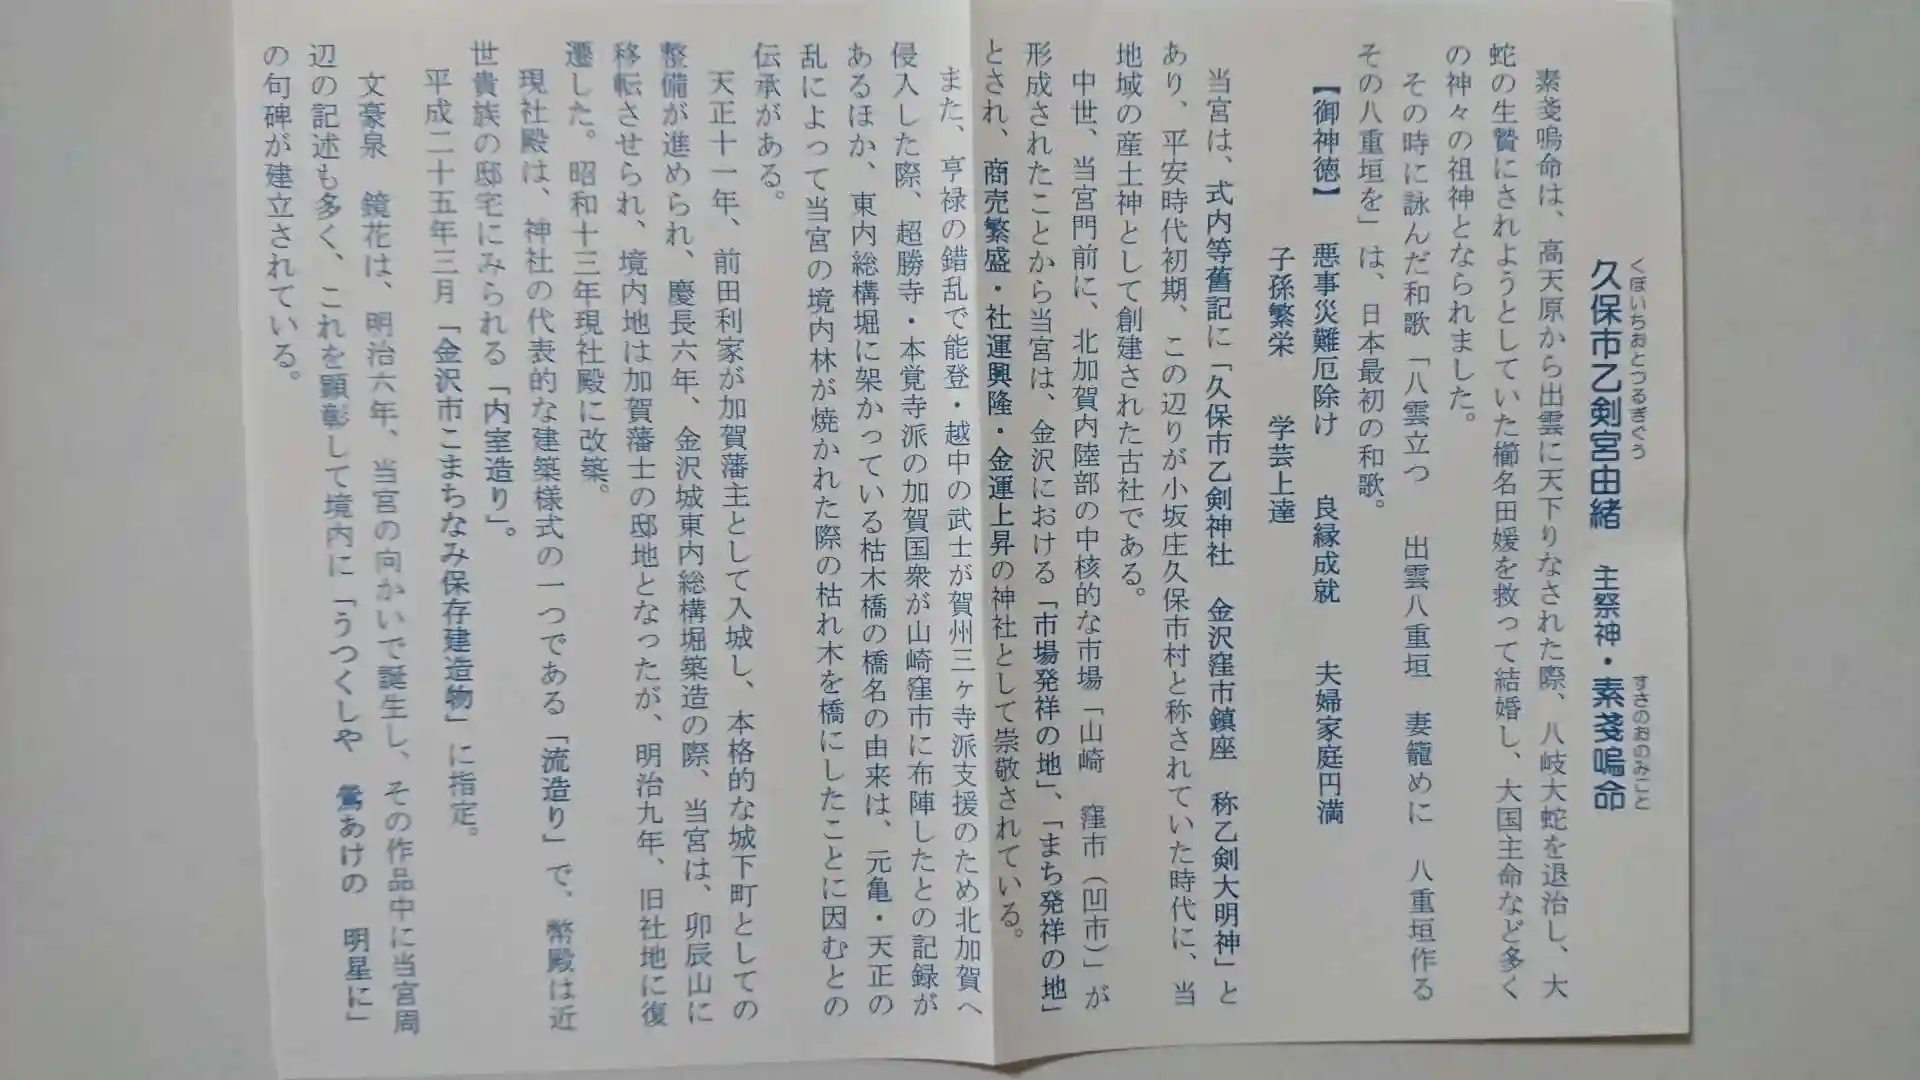 久保市乙剣宮由緒　主祭神・素戔嗚命
くぼいちおとつるぎぐう　すさのおのみこと
素戔嗚命は、高天原から出雲に天下りなされた際、八岐大蛇を退治し、大
蛇の生贄にされようとしていた櫛名田媛を救って結婚し、大国主命など多く
の神々の祖神となられました。
その時に詠んだ和歌「八雲立つ　出雲八重垣　妻籠めに　八重垣作る
その八重垣を」は、日本最初の和歌。
【御神徳】　悪事災難厄除け　良縁成就　夫婦家庭円満
子孫繁栄　学芸上達
当宮は、式内等舊記に「久保市乙剣神社　金沢窪市鎮座　称乙剣大明神」と
あり、平安時代初期、この辺りが小坂庄久保市村と称されていた時代に、当
地域の産土神として創建された古社である。
中世、当宮門前に、北加賀内陸部の中核的な市場「山崎　窪市（凹市）」が
形成されたことから当宮は、金沢における「市場発祥の地」、「まち発祥の地」
とされ、商売繁盛・社運興隆・金運上昇の神社として崇敬されている。
また、亨禄の錯乱で能登・越中の武士が賀州三ヶ寺派支援のため北加賀へ
侵入した際、超勝寺・本覚寺派の加賀国衆が山崎窪市に布陣したとの記録が
あるほか、東内総構堀に架かっている枯木橋の橋名の由来は、元亀・天正の
乱によって当宮の境内林が焼かれた際の枯れ木を橋にしたことに因むとの
伝承がある。
天正十一年、前田利家が加賀藩主として入城し、本格的な城下町としての
整備が進められ、慶長六年、金沢城東内総構堀築造の際、当宮は、卯辰山に
移転させられ、境内地は加賀藩士の邸地となったが、明治九年、旧社地に復
遷した。昭和十三年現社殿に改築。
現社殿は、神社の代表的な建築様式の一つである「流造り」で、幣殿は近
世貴族の邸宅にみられる「内室造り」。
平成二十五年三月「金沢市こまちなみ保存建造物」に指定。
文豪泉　鏡花は、明治六年、当宮の向かいで誕生し、その作品中に当宮周
辺の記述も多く、これを顕彰して境内に「うつくしや　鶯あけの　明星に」
の句碑が建立されている。